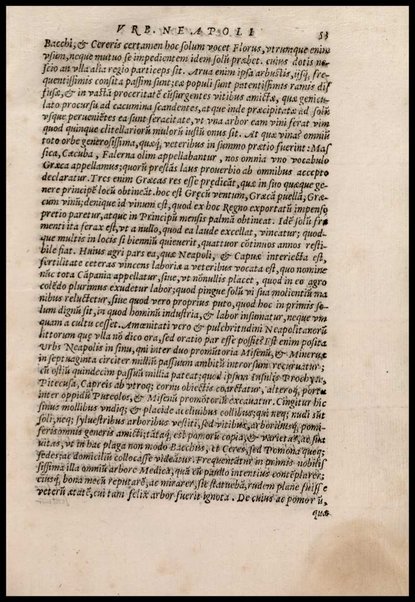 VRB. NEAPOLI 53
Bacchi, & Cereris certamen hoc solum vocet Florus, vtrumque enim
vsum, neque mutuo se impedientem idem soli præbet. cuius dotis ne-
scio an vlla alia regio particeps sit. Arua enim ipsa arbustis, ijsq́; fre-
quentissimis consita passim sunt; eæ populi sunt patentissimis ramis dif
fusæ, & in vastā proceritatē cōsurgentes vitibus amictæ, quæ genicu-
lato procursu ad cacumina scandentes, atque inde præcipitatæ ad solū
vsque peruenietes ea sunt feracitate, vt vna arbor eam vini ferat vim
quod quinque clitellariorū mulorū iustū onus sit. At quæ vina? omniū
toto orbe generosissima, quæq́; veteribus in summo prætio fuerint: Mas
sica, Cæcuba, Falerna olim appellabantur, nos omnia vno vocabulo
Græca appellamus; quorū præstās laus prouerbio ab omnibus accepto
declaratur. Tres enim Græcas res esse prædicāt, quæ in suo quæque ge-
nere principē locū obtineāt. hoc est Grecū ventum, Græcā puellā; Græ-
cum vinū; denique id vinum est, quod ex hoc Regno exportatū impenso
pretio paretur, atque in Principū mensis palmā obtineat. Idē soli fru-
menti ita ferax est, vt a nullo, quod ea laude excellat, vincatur; quod-
que multis in locis si biennii quieuerit, quattuor cōtinuos annos resti-
bile fiat. Huius agri pars ea, quæ Neapoli, & Capuæ interiecta est,
fertilitate ceteras vincens laboria a veteribus vocata est, quo nomine
nūc tota Cāpania appellatur, siue, vt nōnullis placet, quod in eo agro
colēdo plurimus exudetur labor; quod pingue solū vi sua molientiū ma
nibus reluctetur, siue quod vero proprius puto, quod hoc in primis so-
lum dignū sit, in quod hominū industria, & labor insumatur, neque vn
quam a cultu cesset. Amœnitati vero & pulchritudini Neapolitanorū
littorum quæ vlla nō dico ora, sed oratio par esse possit? Est enim posita
Vrbs Neapolis in sinu, qui inter duo promōtoria Misenū, & Mineruæ
in septuaginta circiter milliū passuum ambitū introrsum recuruatur;
cū ostiū quindecim passuū millia pateat; quod ipsum Insulis Prochyta,
Pitecusa, Capreis ab vtroq; cornu obiectis coarctatur, alteroq́; portu
inter oppidū Puteolos, & Misenū promōtoriū excauatur. Cingitur hic
sinus mollibus vndiq; & placide accliuibus collibus; qui neq; nudi sūt
soli, neq; syluestribus arboribus vestiti, sed vitibus, arboribusq́; pomi-
feris omnis generis amicti; tātaq́; est pomorū copia, & varietas, ac sua
uitas, vt in hac plaga non modo Bacchus, et Ceres, sed Pomona quoq;
sedes, ac domiciliū collocasse videātur. Frequentātur in primis nobilis
sissima illa omniū arbore Medica, quā cū paulo intentius contēplarer,
eiusq́; bona mecū reputarē, ac mirarer, sic statuebā, rudem plane fuisse
veterū ætatē, cui tam felix arbor fuerit ignota. De cuius ac pomorū,
quæ